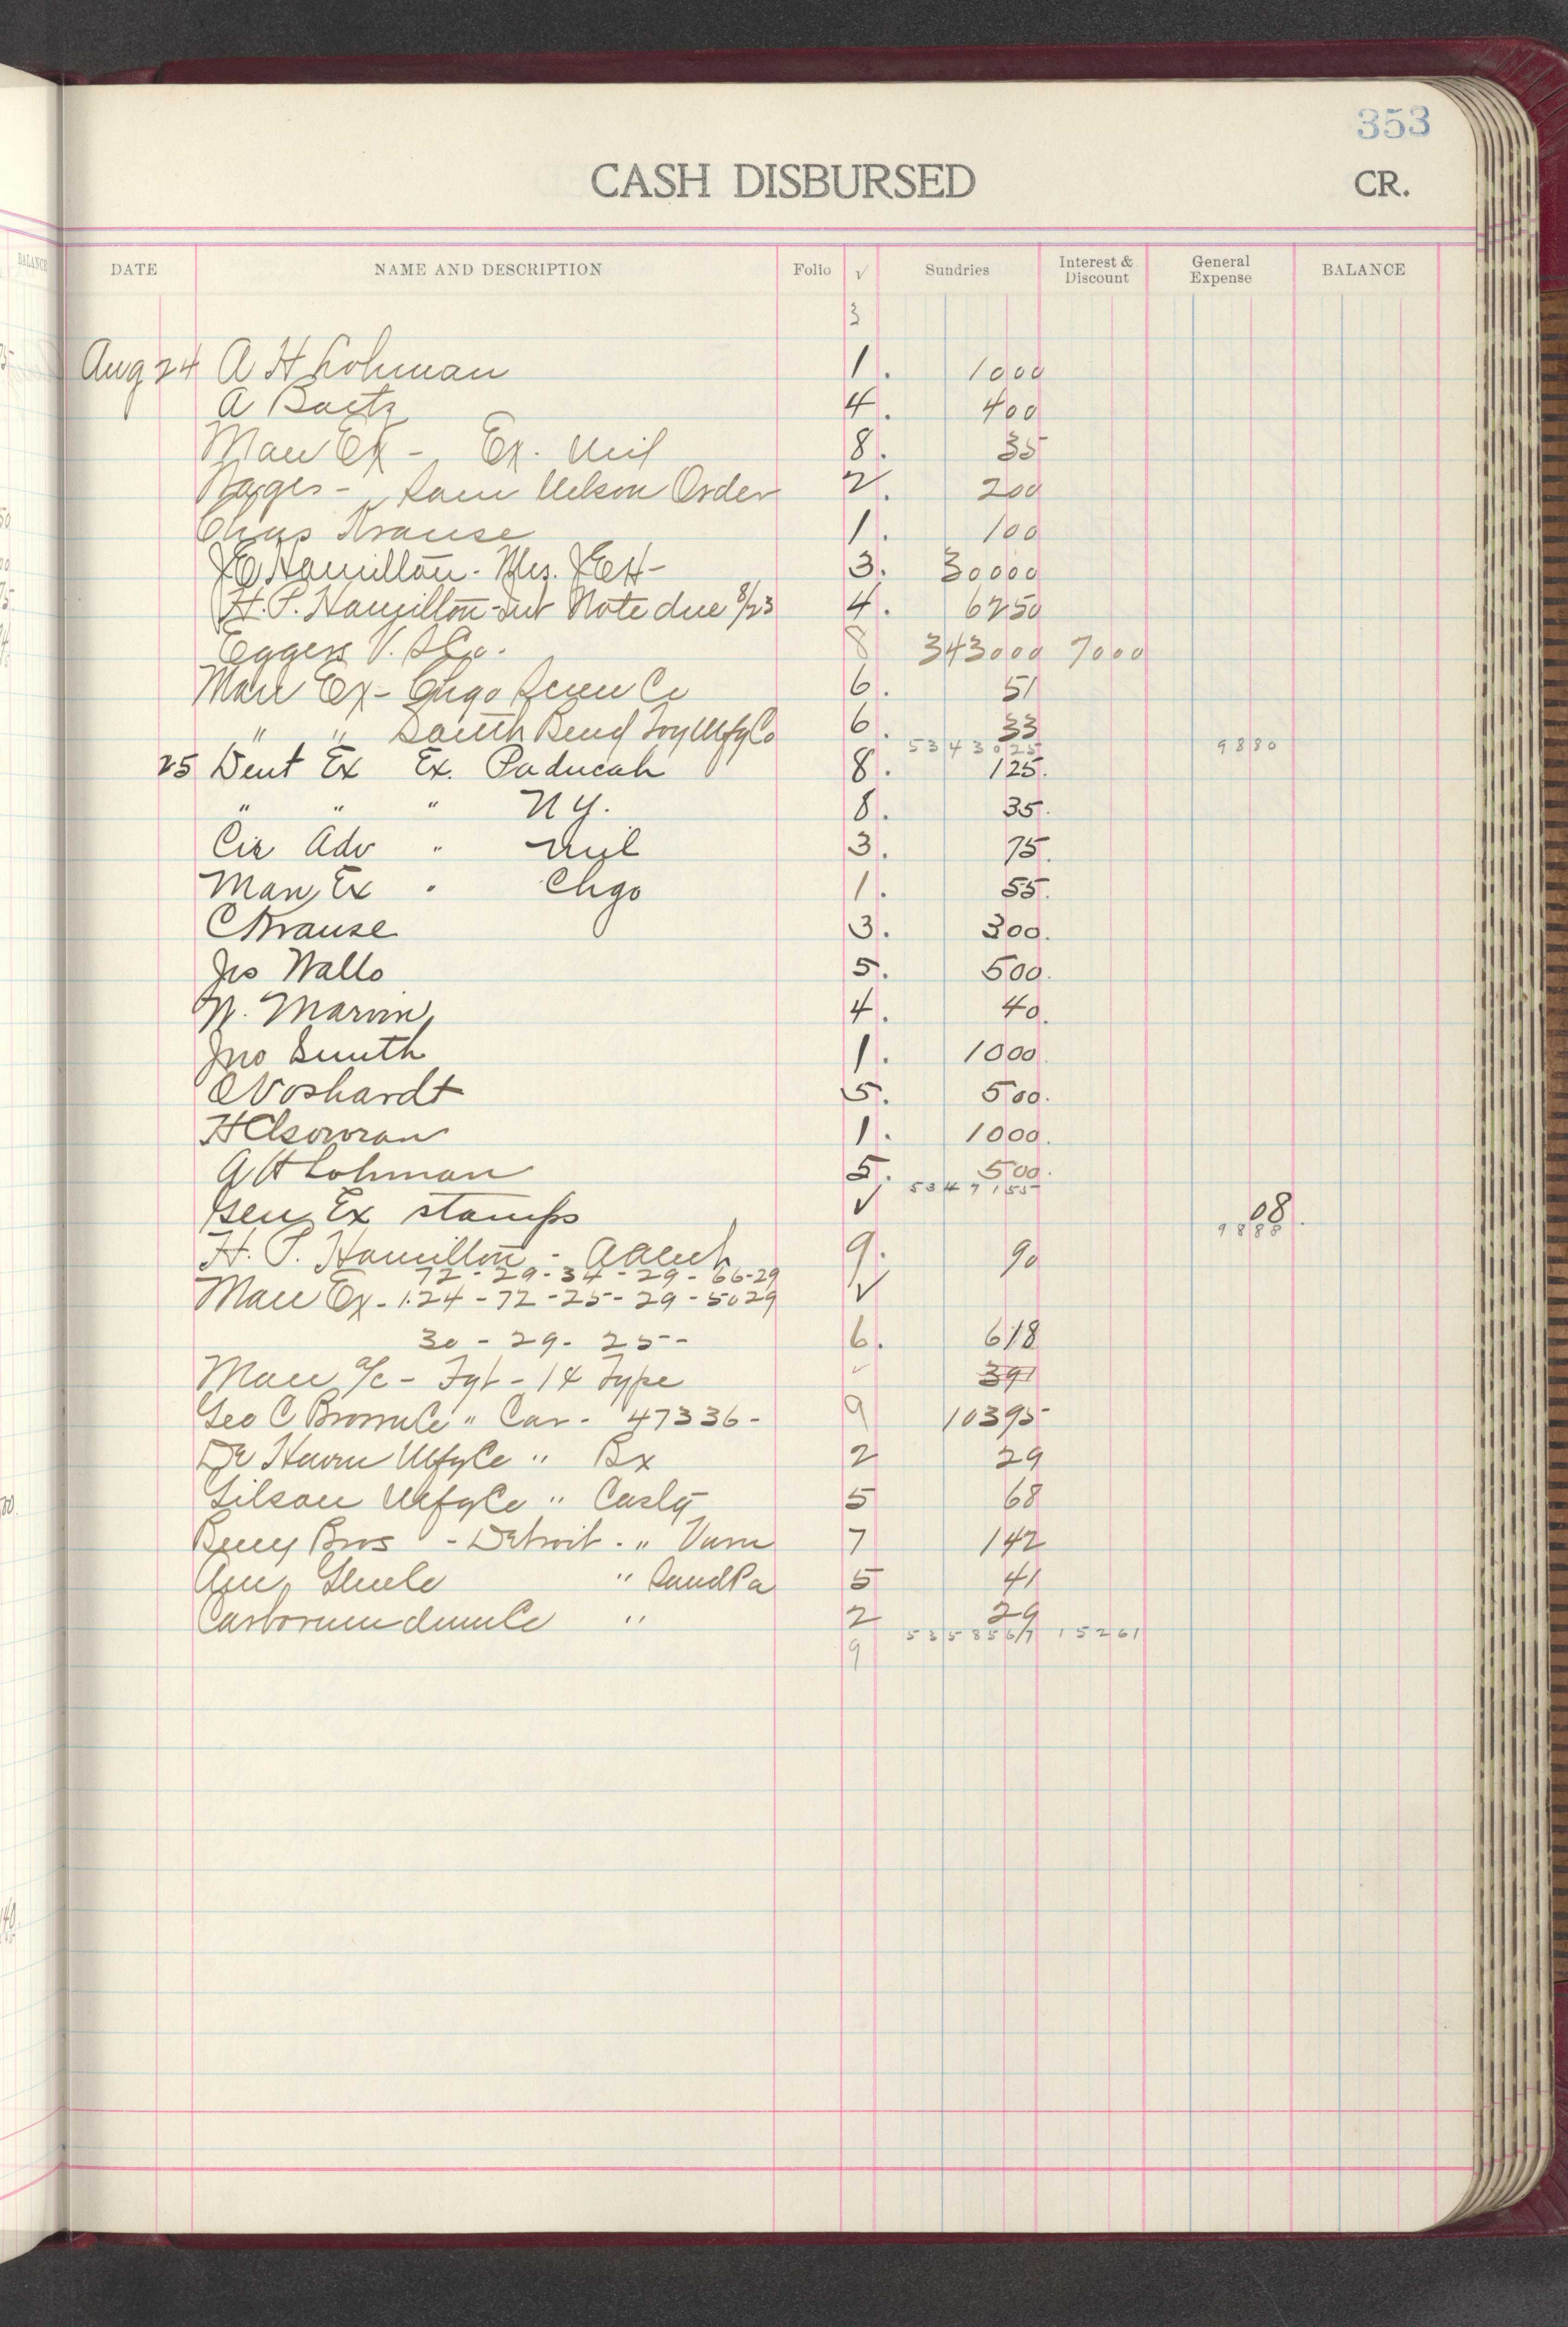 353
CASH DISBURSED CR.
BALANCE DATE NAME AND DESCRIPTION Folio √ Sundries Interest & Discount General Expense BALANCE
3
Aug 24 A H Lohman 1. 1000
A Baetz 4. 400
Man Ex - Ex. Mil 8. 35
Wages - Sam Nelson Order 2. 200
Chas Krause 1. 100
J E Hamilton - Mrs. J E H - 3. 30000
H. P. Hamilton - Int Note due 8/23 4. 6250
Eggers V. S Co. 8 343000 7000
Man Ex - Chgo Screw Co 6. 51
" " South Bend Toy Mfg Co 6. 33
5343025 9880
25 Dent Ex Ex. Paducah 8. 125.
" " " N Y. 8. 35.
Cir Adv " Mil 3. 75.
Man Ex " Chgo 1. 55.
C Krause 3. 300.
Jos Wallo 5. 500.
N. Marvin 4. 40.
Jno Smith 1. 1000
C Voshardt 5. 500.
1. 1000.
A H Lohman 5. 500.
5347155
Gen Ex stamps √ 08.
9888
H. P. Hamilton - 9. 90
72 - 29 - 34 - 29 - 66 - 29
Man Ex - 1.24 - 72 - 25 - 29 - 50 29 √
30 - 29 - 25 - - 6. 618
Man a/c - Fgt - 14 Type √ 391
Geo C Brown Co " Car - 47336 - 9 10395
Mfg Co " Bx 2 29
Gilson Mfg Co " Castg 5 68
Berry Bros - Detroit - " Varn 7 142
Am Glue Co " Sand Pa 5 41
Carborundum Co " 2 29
5358567 15261
9